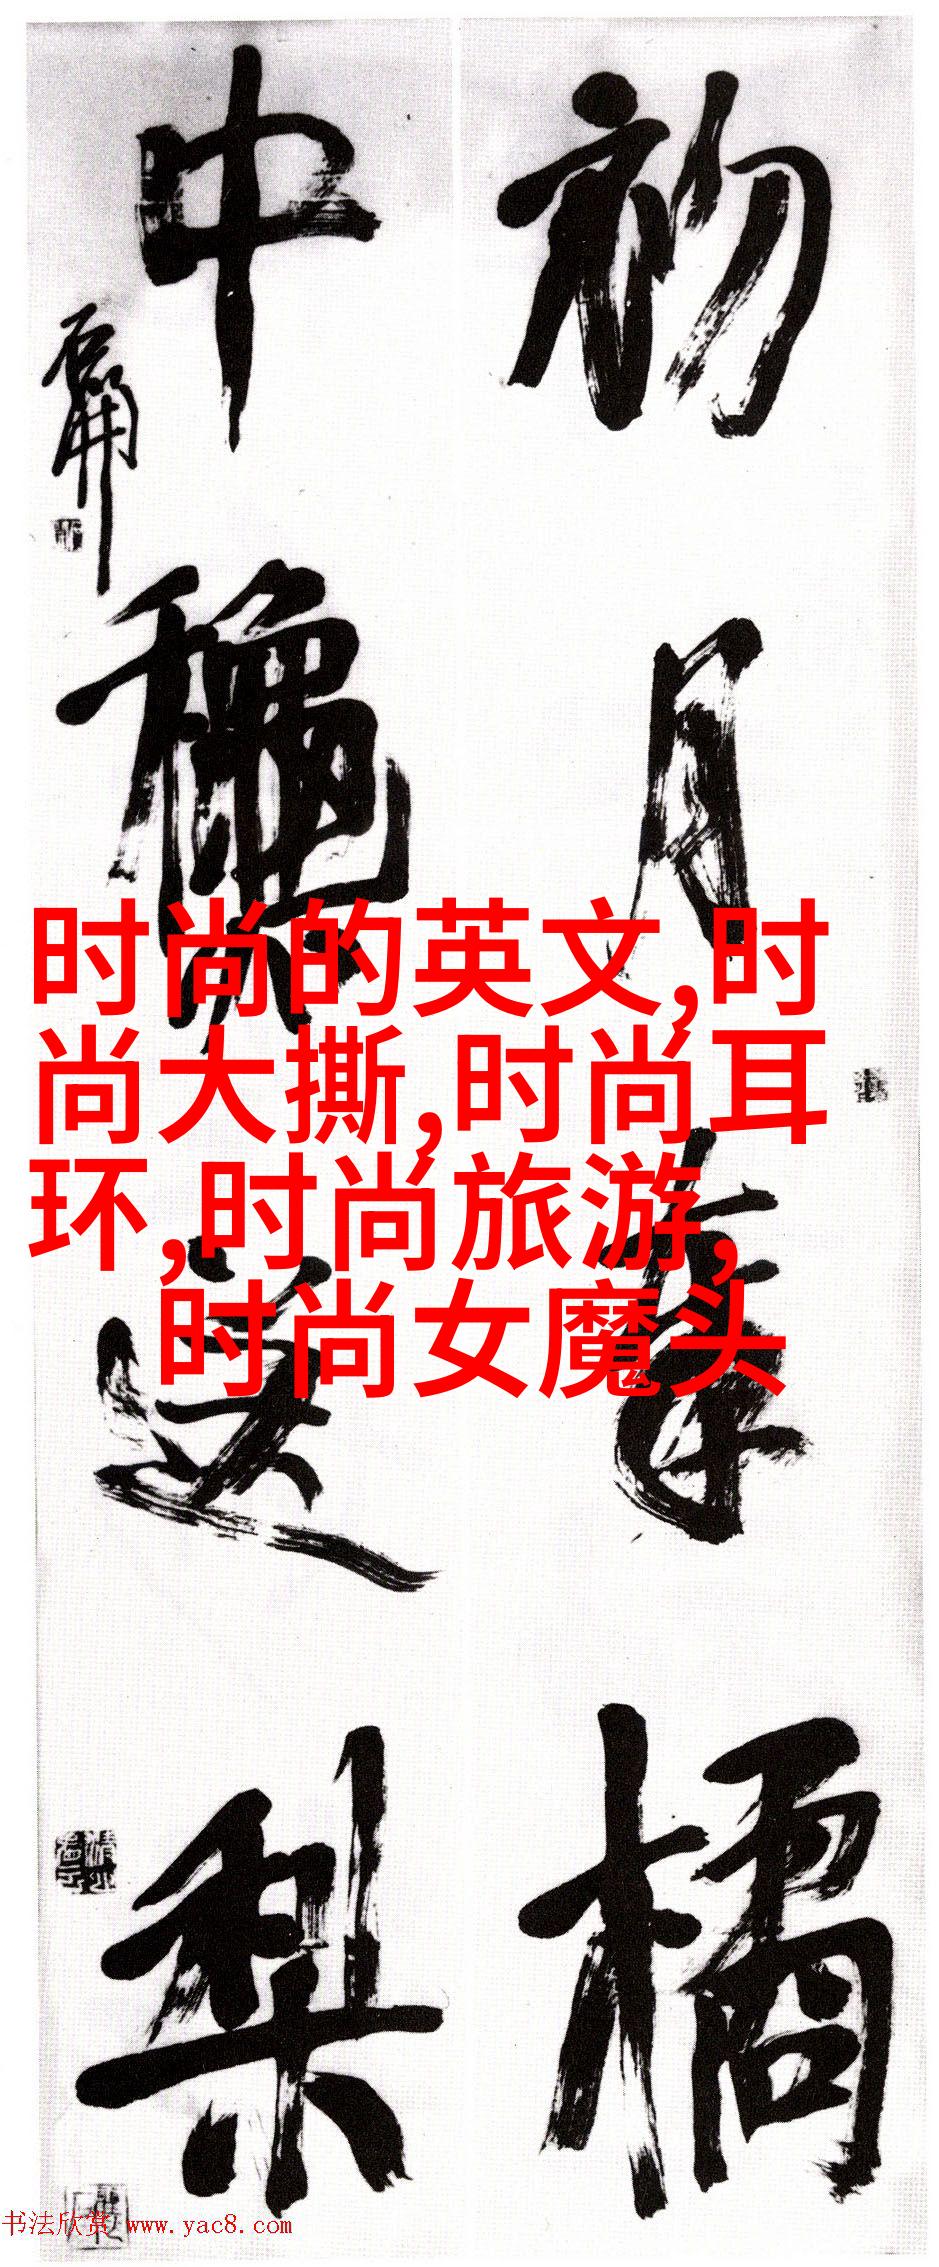 初月奉橘
中龝送梨
石庵
时尚的英文,时
尚大撕,时尚耳
环,时尚旅游,
时尚女魔头
书法欣赏 www.yac8.com